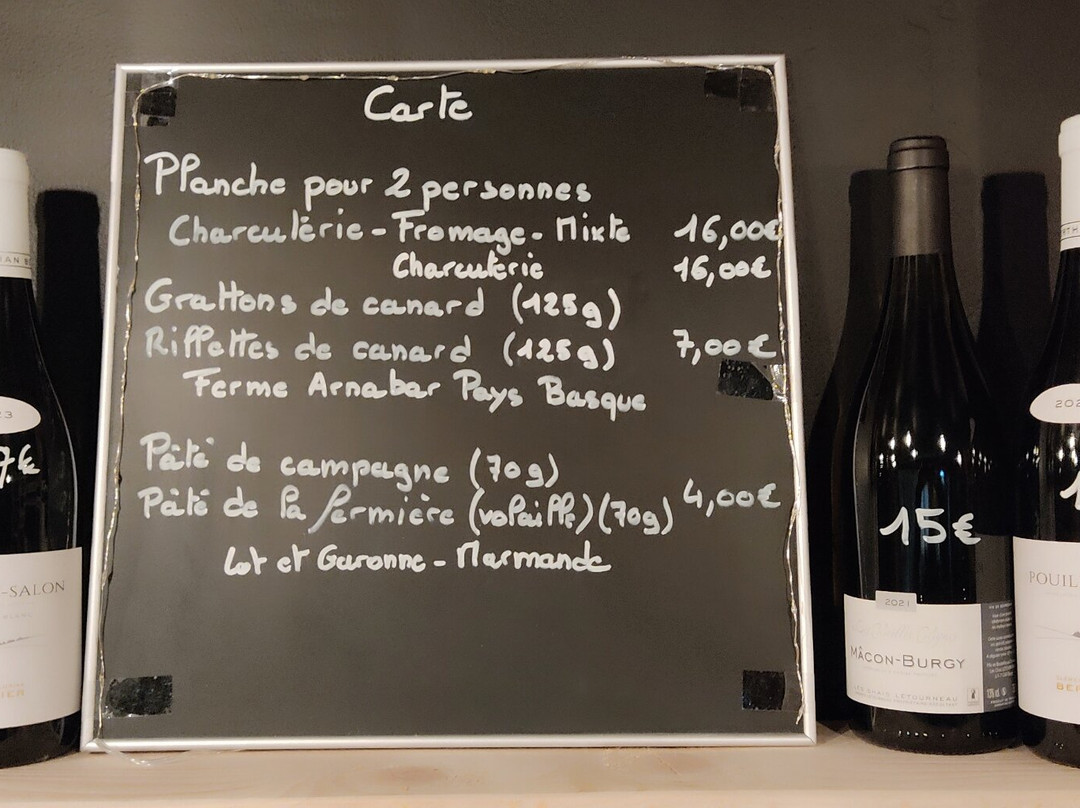 Carte
Planche pour 2 personnes
Charcuterie - Fromage - Mixte 16,00€
Charcuterie 16,00€
Grattons de canard (125g)
Riffettes de canard (125g) 7,00€
Ferme Arnabar Pays Basque
Pâté de campagne (70g)
Pâté de la fermière (volaille) (70g) 4,00€
Lot et Garonne - Marmande
7€
-SALON
15€
2021
MÂCON-BURGY
LES CHAIS LETOURNEAU
POUIL